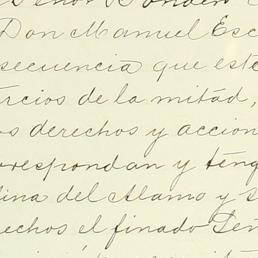 Señor
Don Manuel Esc
secuencia que este
ercios de la mitad,
os derechos y accion
orrespondan y teng
lina del Alamo y s
echos el finado Señ